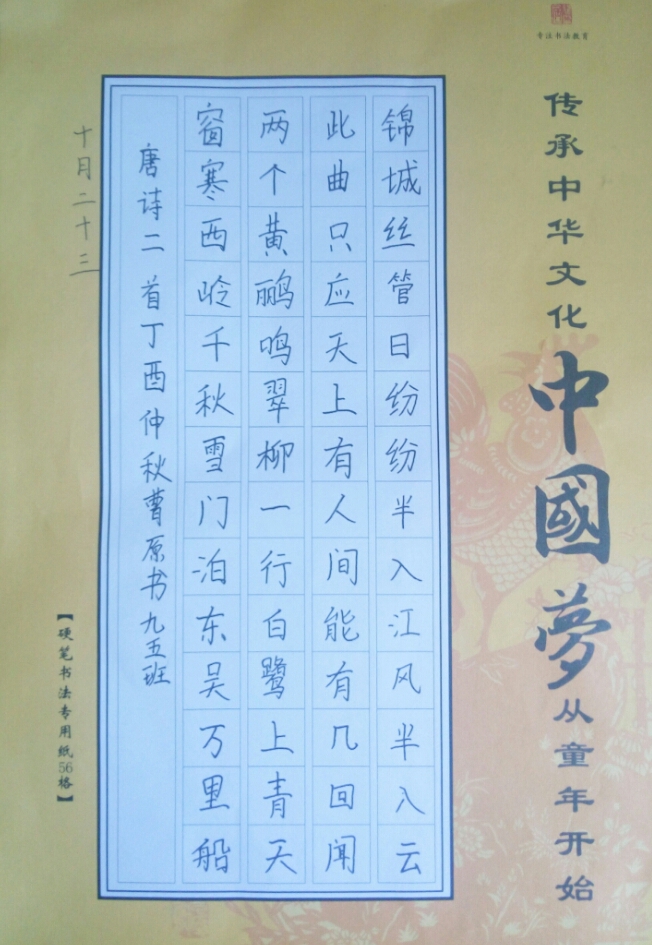 专注书法教育
传承中华文化
中國夢
从童年开始
锦城丝管日纷纷半入江风半入云
此曲只应天上有人间能有几回闻
两个黄鹂鸣翠柳一行白鹭上青天
窗寒西岭千秋雪门泊东吴万里船
唐诗二首丁酉仲秋曹原书九五班
十月二十三
【硬笔书法专用纸56格】